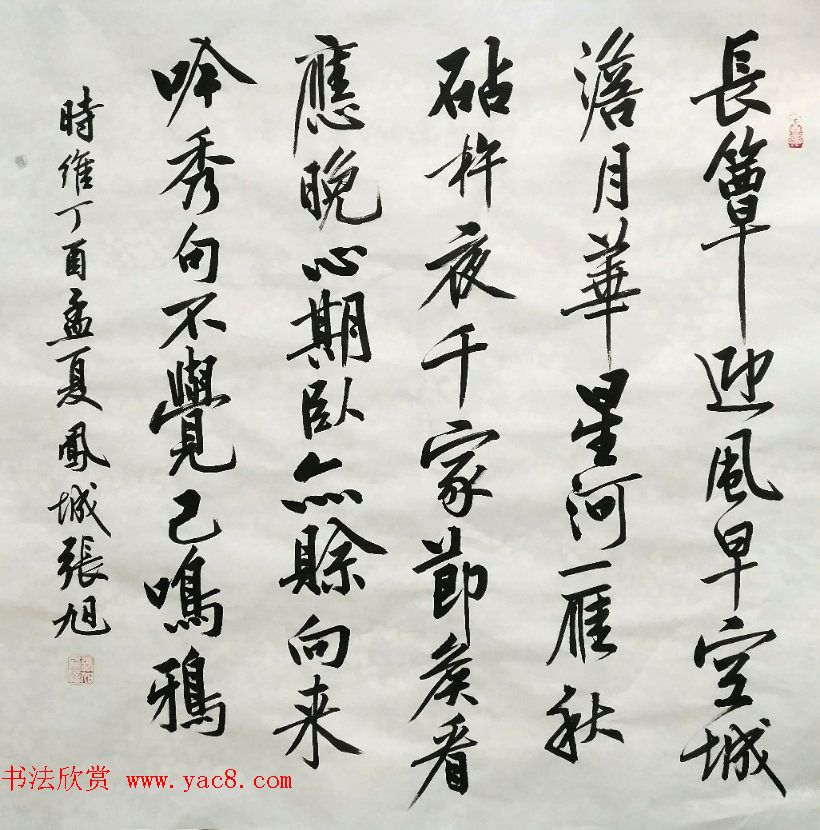 長簟迎風早空城
澹月華星河一雁秋
砧杵夜千家節矦看
應晚心期臥亦賒向来
吟秀句不覺已鳴鴉
時維丁酉孟夏鳳城張旭
书法欣赏 www.yac8.com